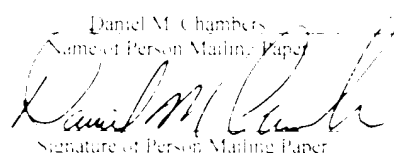 Daniel M. Chambers
Name of Person Mailing Paper
Daniel M
Signature of Person Mailing Paper